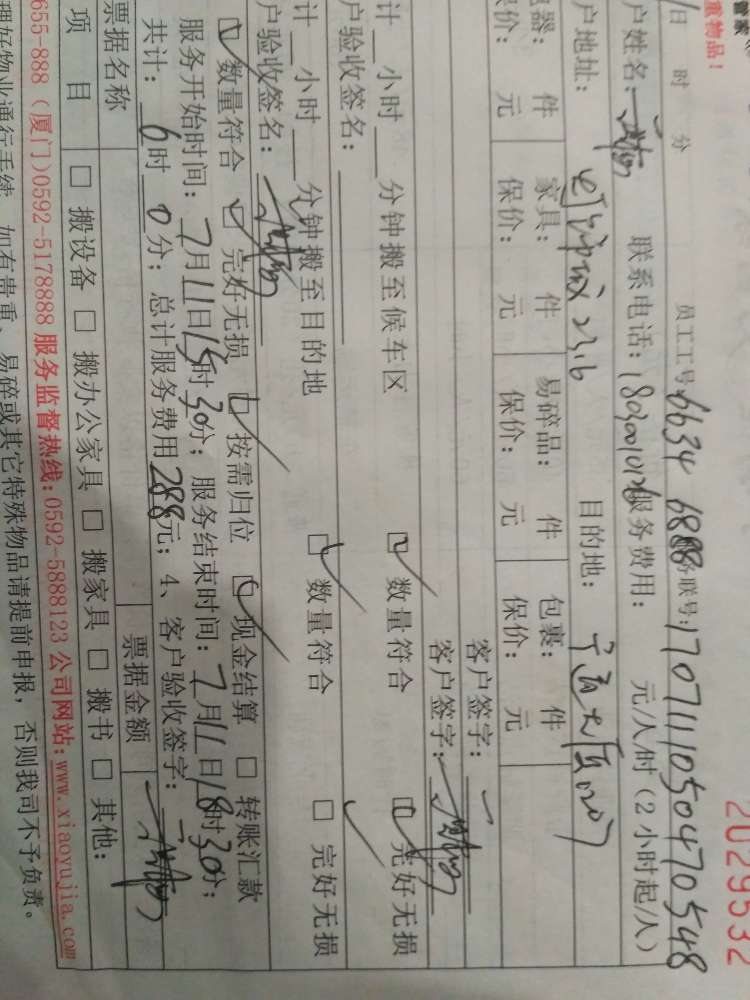 2029532
重物品！
日 时 分 员工工号：6634 6888 务联号：170711105047 0548
户姓名： 联系电话： 服务费用： 元/人/时（2小时起/人）
户地址： 目的地：
器： 件 家具： 件 易碎品： 件 包裹： 件
保价： 元 保价： 元 保价： 元 保价： 元
客户签字：
客户签字：
计 小时 分钟搬至候车区 数量符合 完好无损
户验收签名：
计 小时 分钟搬至目的地 数量符合 完好无损
户验收签名：
数量符合 完好无损 按需归位 现金结算 转账汇款
服务开始时间：7月11日15时30分；服务结束时间：7月11日18时30分；
共计：6时0分；总计服务费用288元；4、客户验收签字：
票据名称 票据金额
项 目 搬设备 搬办公家具 搬家具 搬书 其他：
655-888（厦门）0592-5178888 服务监督热线：0592-5888123 公司网站：www.xiaoyujia.com
理好物业通行手续，如有贵重、易碎或其它特殊物品请提前申报，否则我司不予负责。